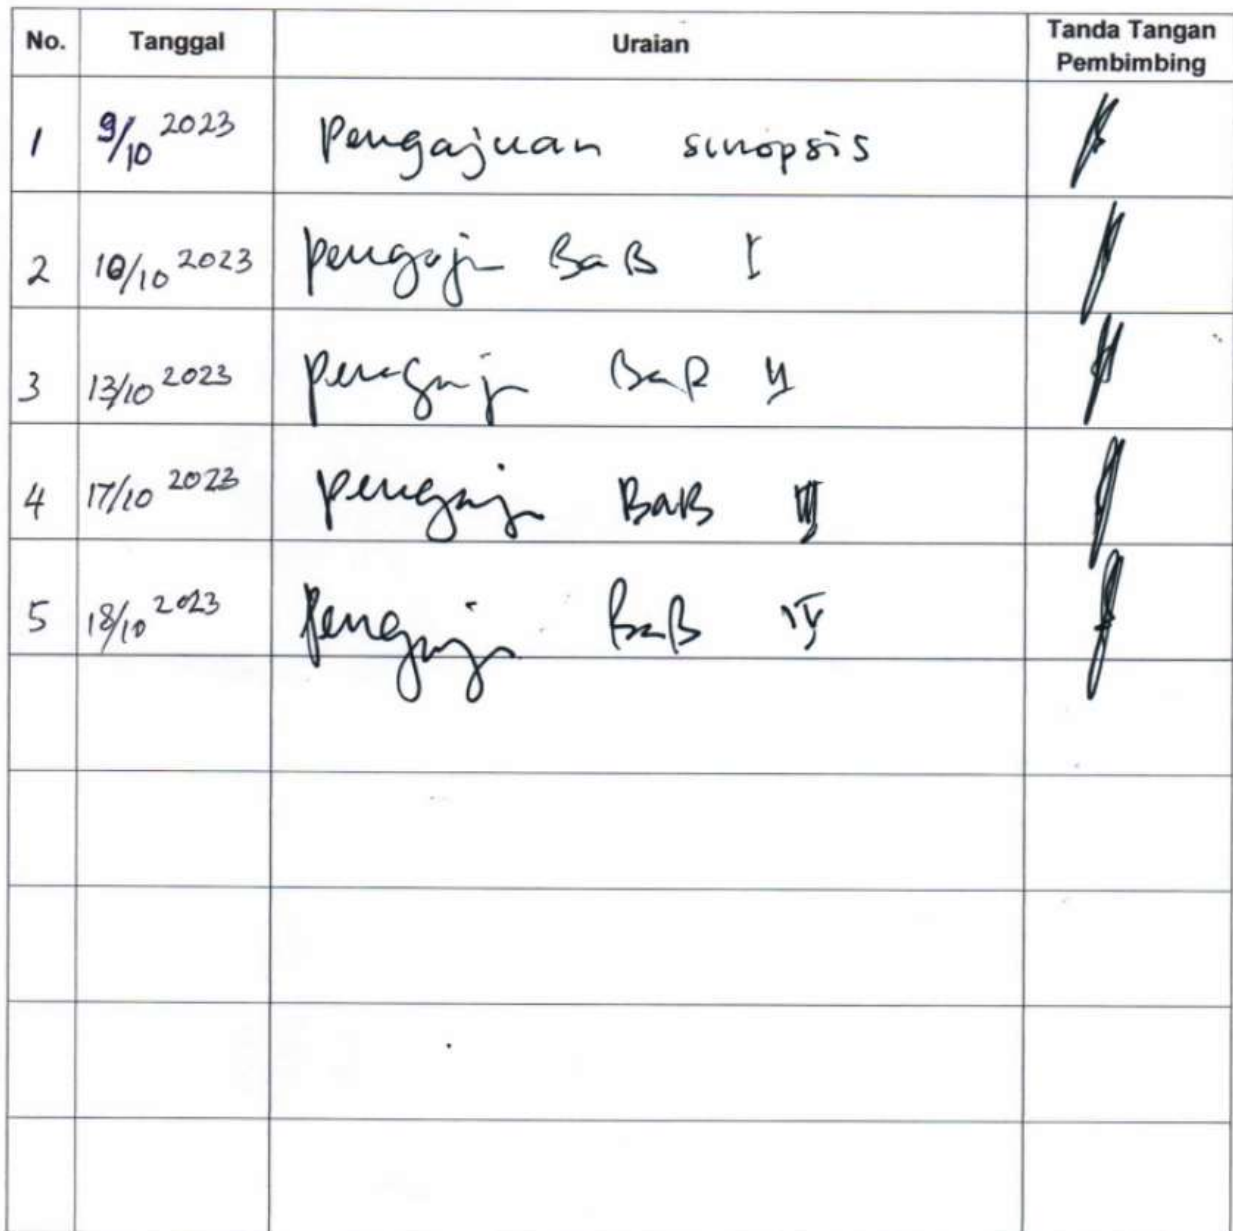 No. Tanggal Uraian Tanda Tangan Pembimbing
1 9/10 2023 Pengajuan sinopsis
2 10/10 2023 pengaj BaB I
3 13/10 2023 pengaj BaB II
4 17/10 2023 pengaj BaB III
5 18/10 2023 pengaj BaB IV